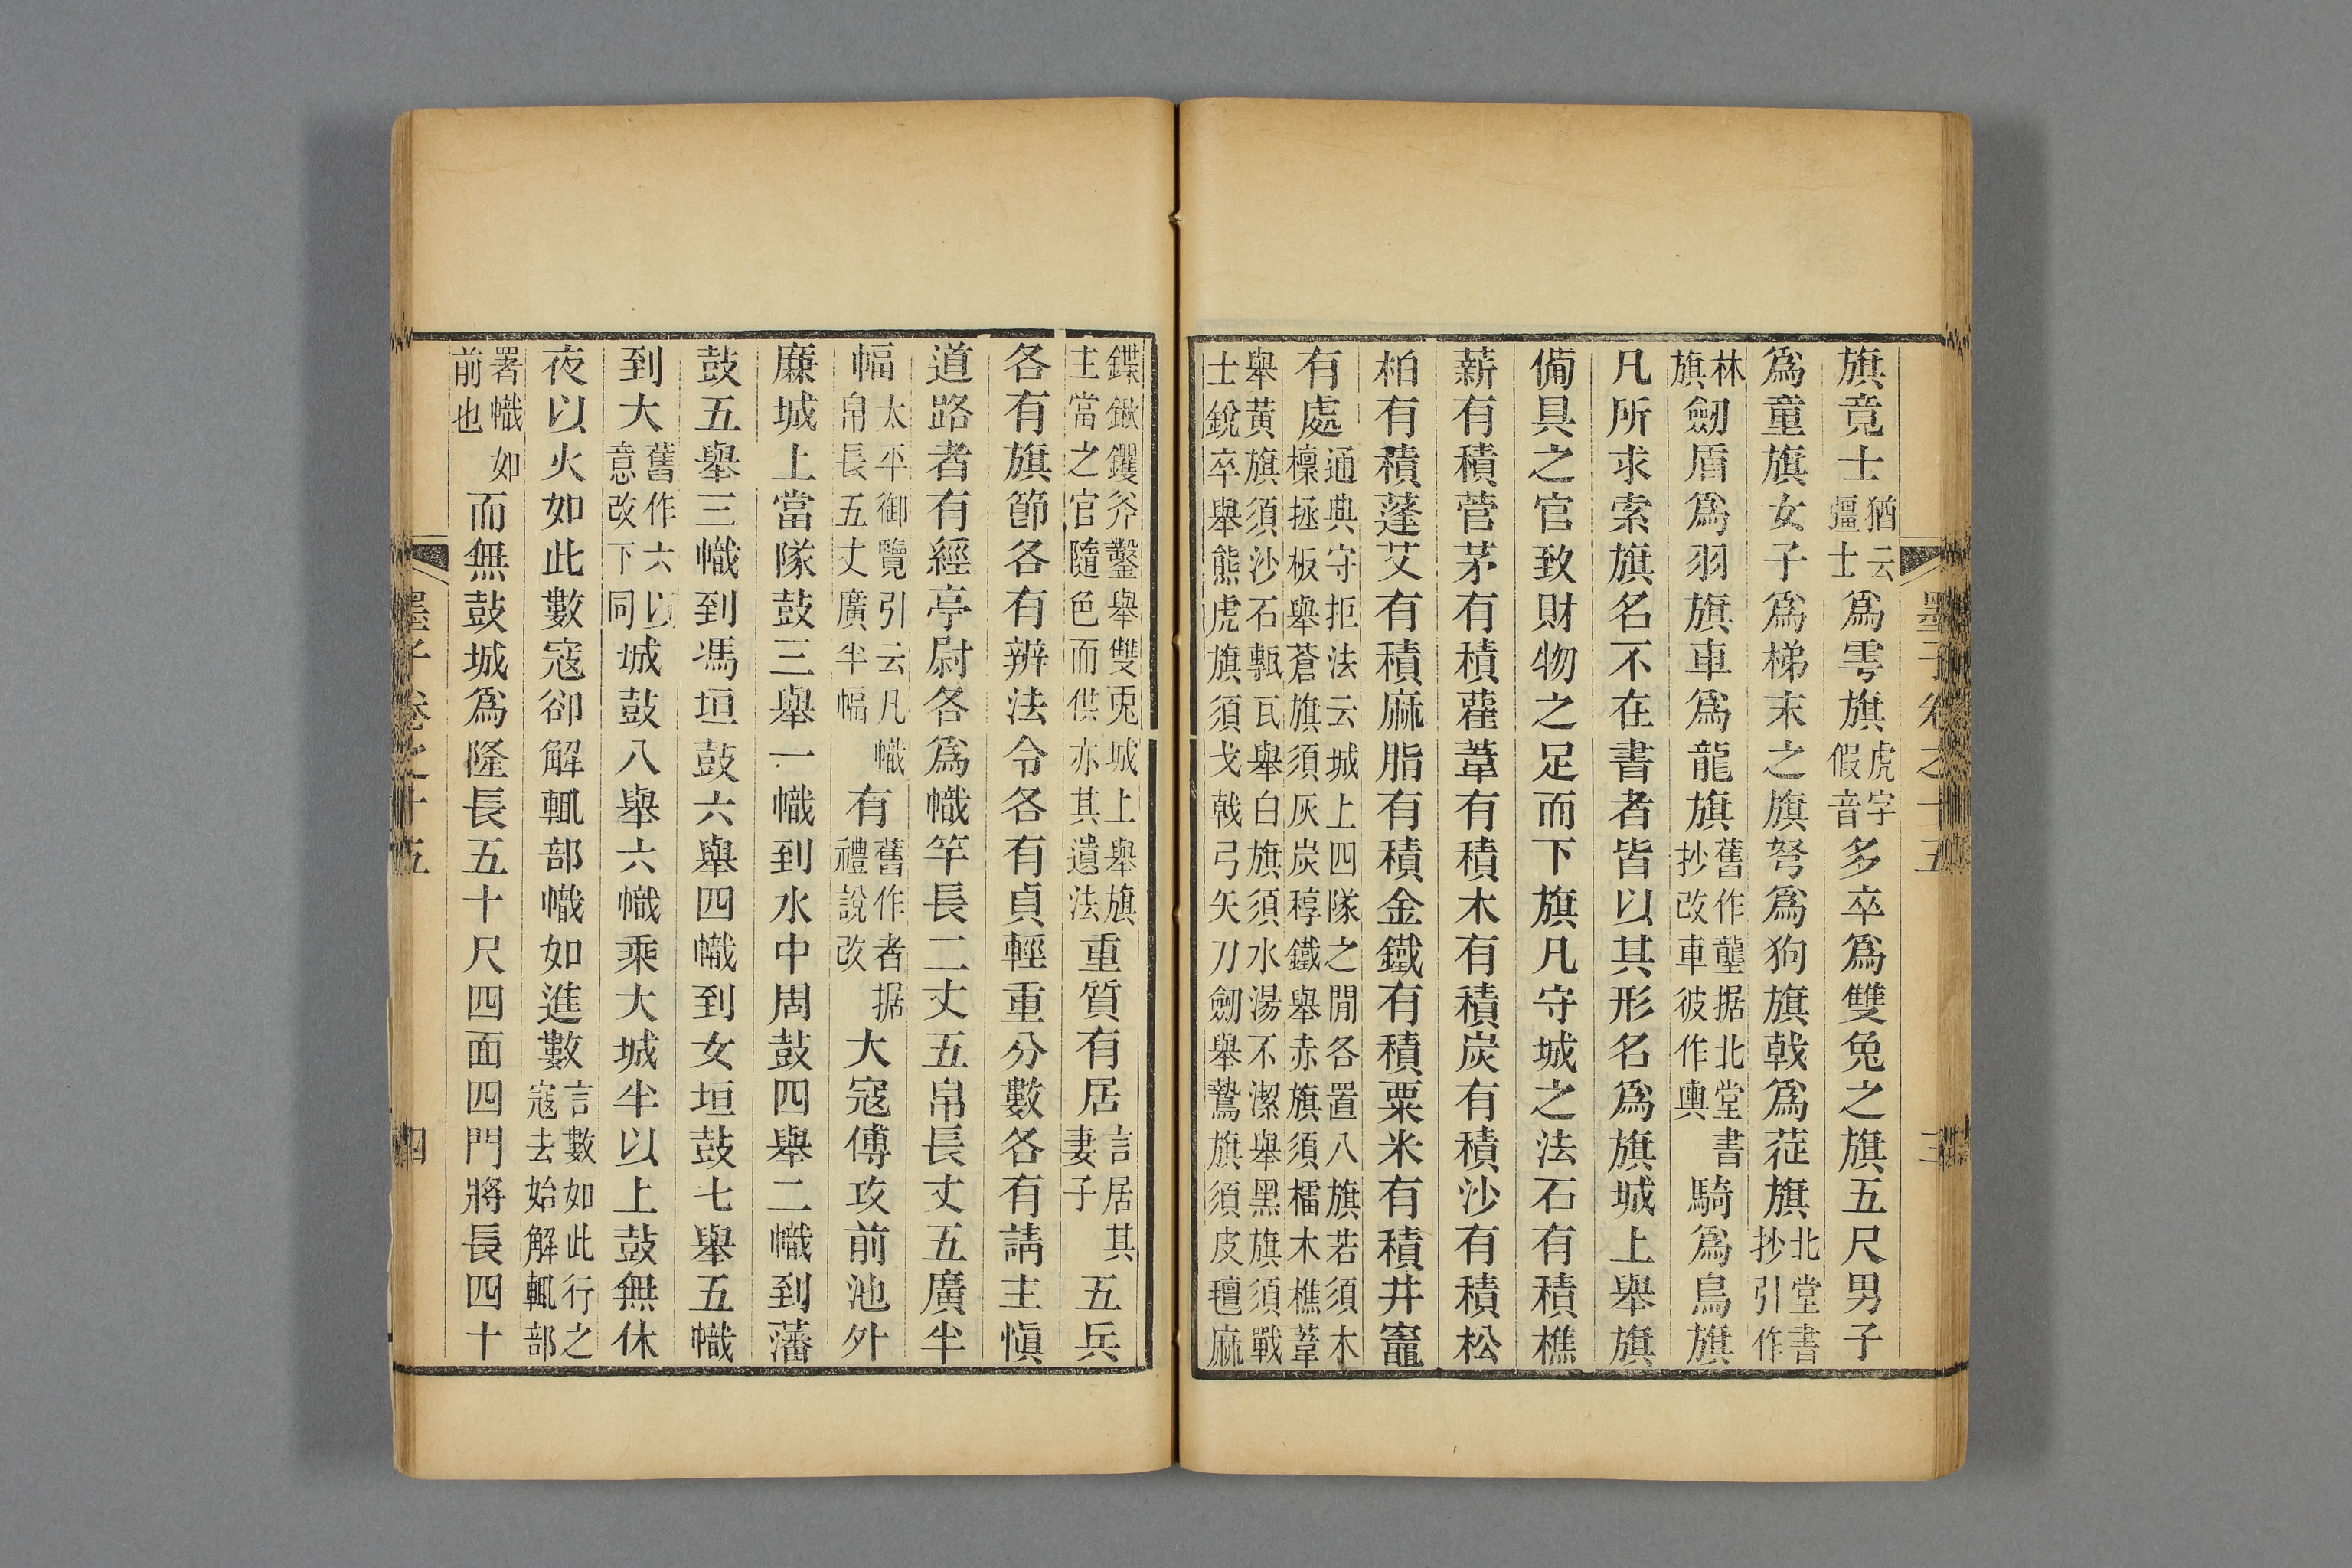 墨子卷之十五
三
旗竟士猶云彊士爲雩旗虎字假音多卒爲雙兔之旗五尺男子
爲童旗女子爲梯末之旗弩爲狗旗戟爲䒾旗北堂書抄引作
林旗劒盾爲羽旗車爲龍旗舊作壟据北堂書抄改車彼作輿騎爲鳥旗
凡所求索旗名不在書者皆以其形名爲旗城上舉旗
備具之官致財物之足而下旗凡守城之法石有積樵
薪有積菅茅有積雚葦有積木有積炭有積沙有積松
柏有積蓬艾有積麻脂有積金鐵有積粟米有積井竈
有處通典守拒法云城上四隊之閒各置八旗若須木檁拯板舉蒼旗須灰炭稕鐵舉赤旗須檑木樵葦
舉黃旗須沙石甎瓦舉白旗須水湯不潔舉黑旗須戰士銳卒舉熊虎旗須戈戟弓矢刀劒舉鷙旗須皮氊麻
鍱鍬钁斧鑿舉雙兎城上舉旗主當之官隨色而供亦其遺法重質有居言居其妻子五兵
各有旗節各有辨法令各有貞輕重分數各有請主愼
道路者有經亭尉各爲幟竿長二丈五帛長丈五廣半
幅太平御覽引云凡幟帛長五丈廣半幅有舊作者据禮說改大寇傅攻前池外
廉城上當隊鼓三舉一幟到水中周鼓四舉二幟到藩
鼓五舉三幟到馮垣鼓六舉四幟到女垣鼓七舉五幟
到大舊作六以意改下同城鼓八舉六幟乘大城半以上鼓無休
夜以火如此數寇卻解輒部幟如進數言數如此行之寇去始解輒部
署幟如前也而無鼓城爲隆長五十尺四面四門將長四十
墨子卷之十五
四